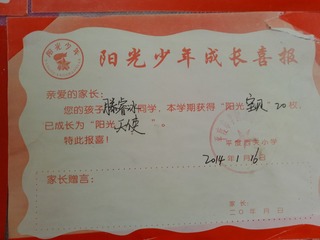 阳光少年
阳光少年成长喜报
亲爱的家长：
您的孩子滕睿冰同学，本学期获得“阳光宝贝”20枚，
已成长为“阳光天使”
特此报喜！
2014年1月16日
家长赠言：
家长：
二〇 年 月 日